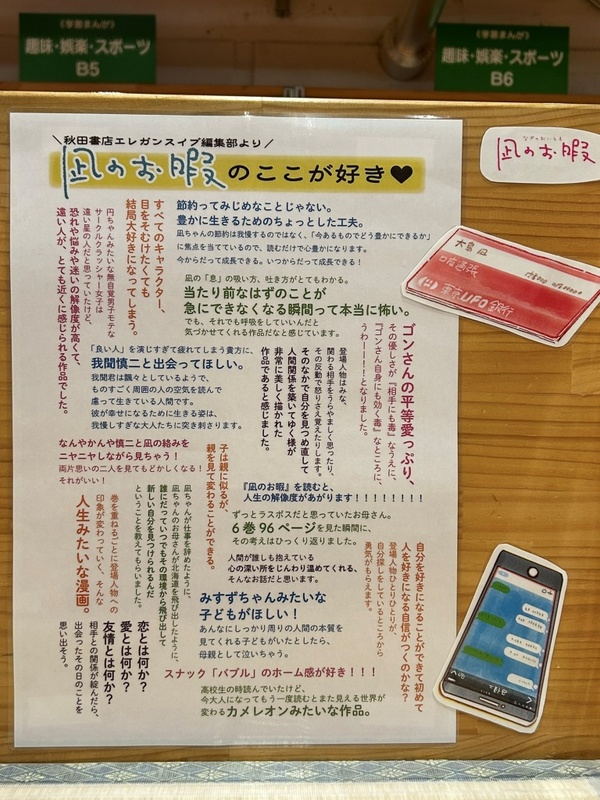 《学習まんが》
趣味・娯楽・スポーツ
B5
《学習まんが》
趣味・娯楽・スポーツ
B6
\秋田書店エレガンスイブ編集部より/
凪のお暇のここが好き♥
凪のお暇
節約ってみじめなことじゃない。
豊かに生きるためのちょっとした工夫。
凪ちゃんの節約は我慢するのではなく、「今あるものでどう豊かにできるか」
に焦点を当てているので、読むだけで心豊かになります。
今からだって成長できる。いつからだって成長できる!
すべてのキャラクター、
目をそむけたくても
結局大好きになってしまう。
円ちゃんみたいな無自覚男子モテな
サークルクラッシャー女子は
遠い星の人だと思っていたけど、
恐れや悩みや迷いの解像度が高くて、
遠い人が、とても近くに感じられる作品でした。
凪の「息」の吸い方、吐き方がとてもわかる。
当たり前なはずのことが
急にできなくなる瞬間って本当に怖い。
でも、それでも呼吸をしていいんだと
気づかせてくれる作品だなと感じています。
ゴンさんの平等愛っぷり、
その優しさが『相手にも毒』なうえに、
『ゴンさん自身にも効く毒』なところに、
うわーーーー!となりました。
「良い人」を演じすぎて疲れてしまう貴方に、
我聞慎二と出会ってほしい。
我聞君は飄々としているようで、
ものすごく周囲の人の空気を読んで
慮って生きている人間です。
彼が幸せになるために生きる姿は、
我慢しすぎな大人たちに突き刺さります。
登場人物はみな、
関わる相手をうらやましく思ったり、
その反動で怒りさえ覚えたりします。
そのなかで自分を見つめ直して
人間関係を築いてゆく様が
非常に美しく描かれた
作品であると感じました。
なんやかんや慎二と凪の絡みを
ニヤニヤしながら見ちゃう!
両片思いの二人を見てもどかしくなる!
それがいい!
子は親に似るが、
親を見て変わることができる。
凪ちゃんが仕事を辞めたように、
凪ちゃんのお母さんが北海道を飛び出したように、
誰にだっていつでもその環境から飛び出して
新しい自分を見つけられるんだ
ということを教えてもらいました。
『凪のお暇』を読むと、
人生の解像度があがります!!!!!!!!
ずっとラスボスだと思っていたお母さん。
6巻96ページを見た瞬間に、
その考えはひっくり返りました。
人間が誰しも抱えている
心の深い所をじんわり温めてくれる、
そんなお話だと思います。
自分を好きになることができて初めて
人を好きになる自信がつくのかな?
登場人物ひとりひとりが、
自分探しをしているところから
勇気がもらえます。
巻を重ねるごとに登場人物への
印象が変わっていく、そんな
人生みたいな漫画。
みすずちゃんみたいな
子どもがほしい!
あんなにしっかり周りの人間の本質を
見てくれる子どもがいたとしたら、
母親として泣いちゃう。
恋とは何か?
愛とは何か?
友情とは何か?
相手との関係が綻んだら、
出会ったその日のことを
思い出そう。
スナック「バブル」のホーム感が好き!!!
高校生の時読んでいたけど、
今大人になってもう一度読むとまた見える世界が
変わるカメレオンみたいな作品。
大島 凪
口座通帳
UFO銀行